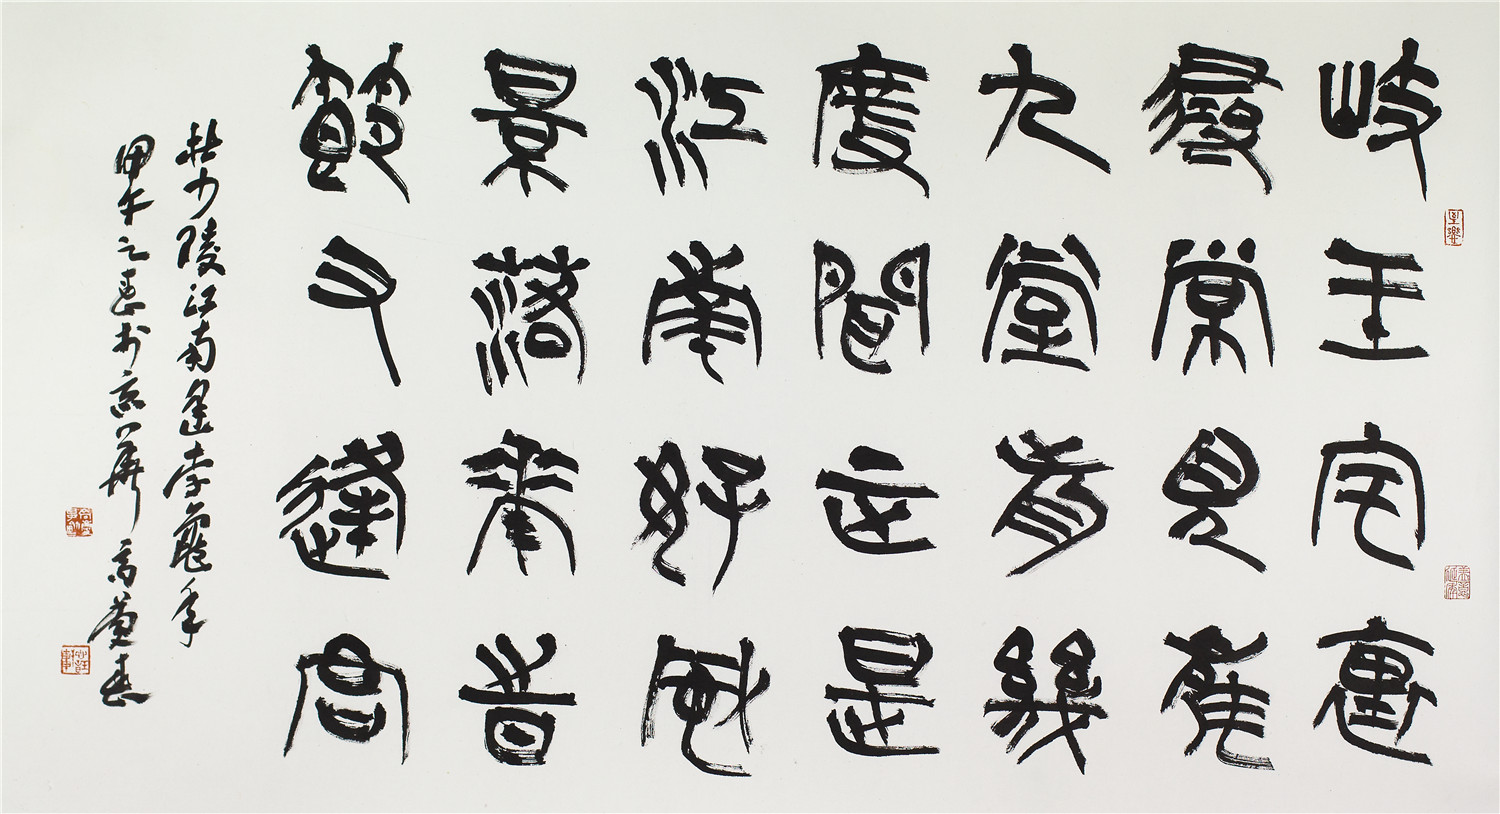 岐王宅裏
尋常見崔
九堂前幾
度聞正是
江南好風
景落華時
節又逢君
杜少陵江南逢李龜年
甲午之春於京華 高慶春